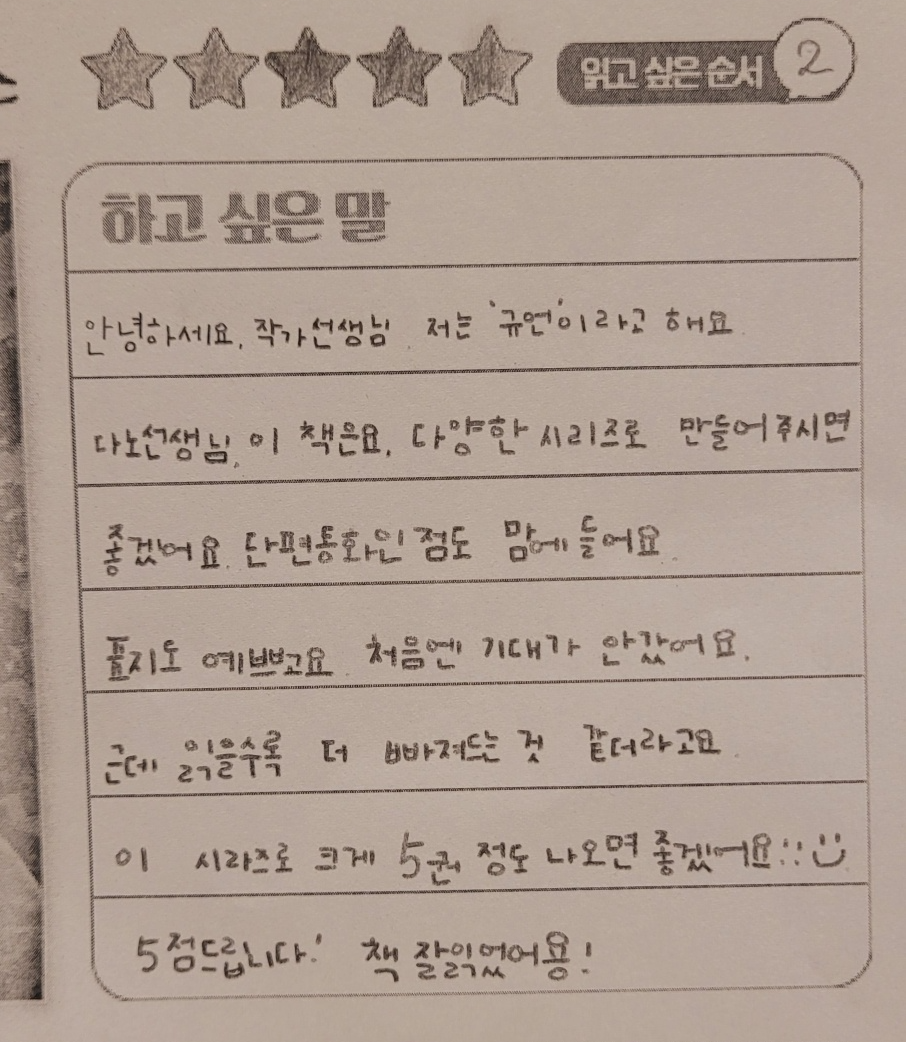 읽고 싶은 순서 2
하고 싶은 말
안녕하세요, 작가선생님. 저는 '규연'이라고 해요.
다노선생님, 이 책은요, 다양한 시리즈로 만들어주시면
좋겠어요. 단편통화인 점도 맘에 들어요.
표지도 예쁘고요. 처음엔 기대가 안갔어요.
근데 읽을수록 더 빠져드는 것 같더라고요.
이 시라즈로 크게 5권 정도 나오면 좋겠어요!!
5점드립니다! 책 잘읽었어용!